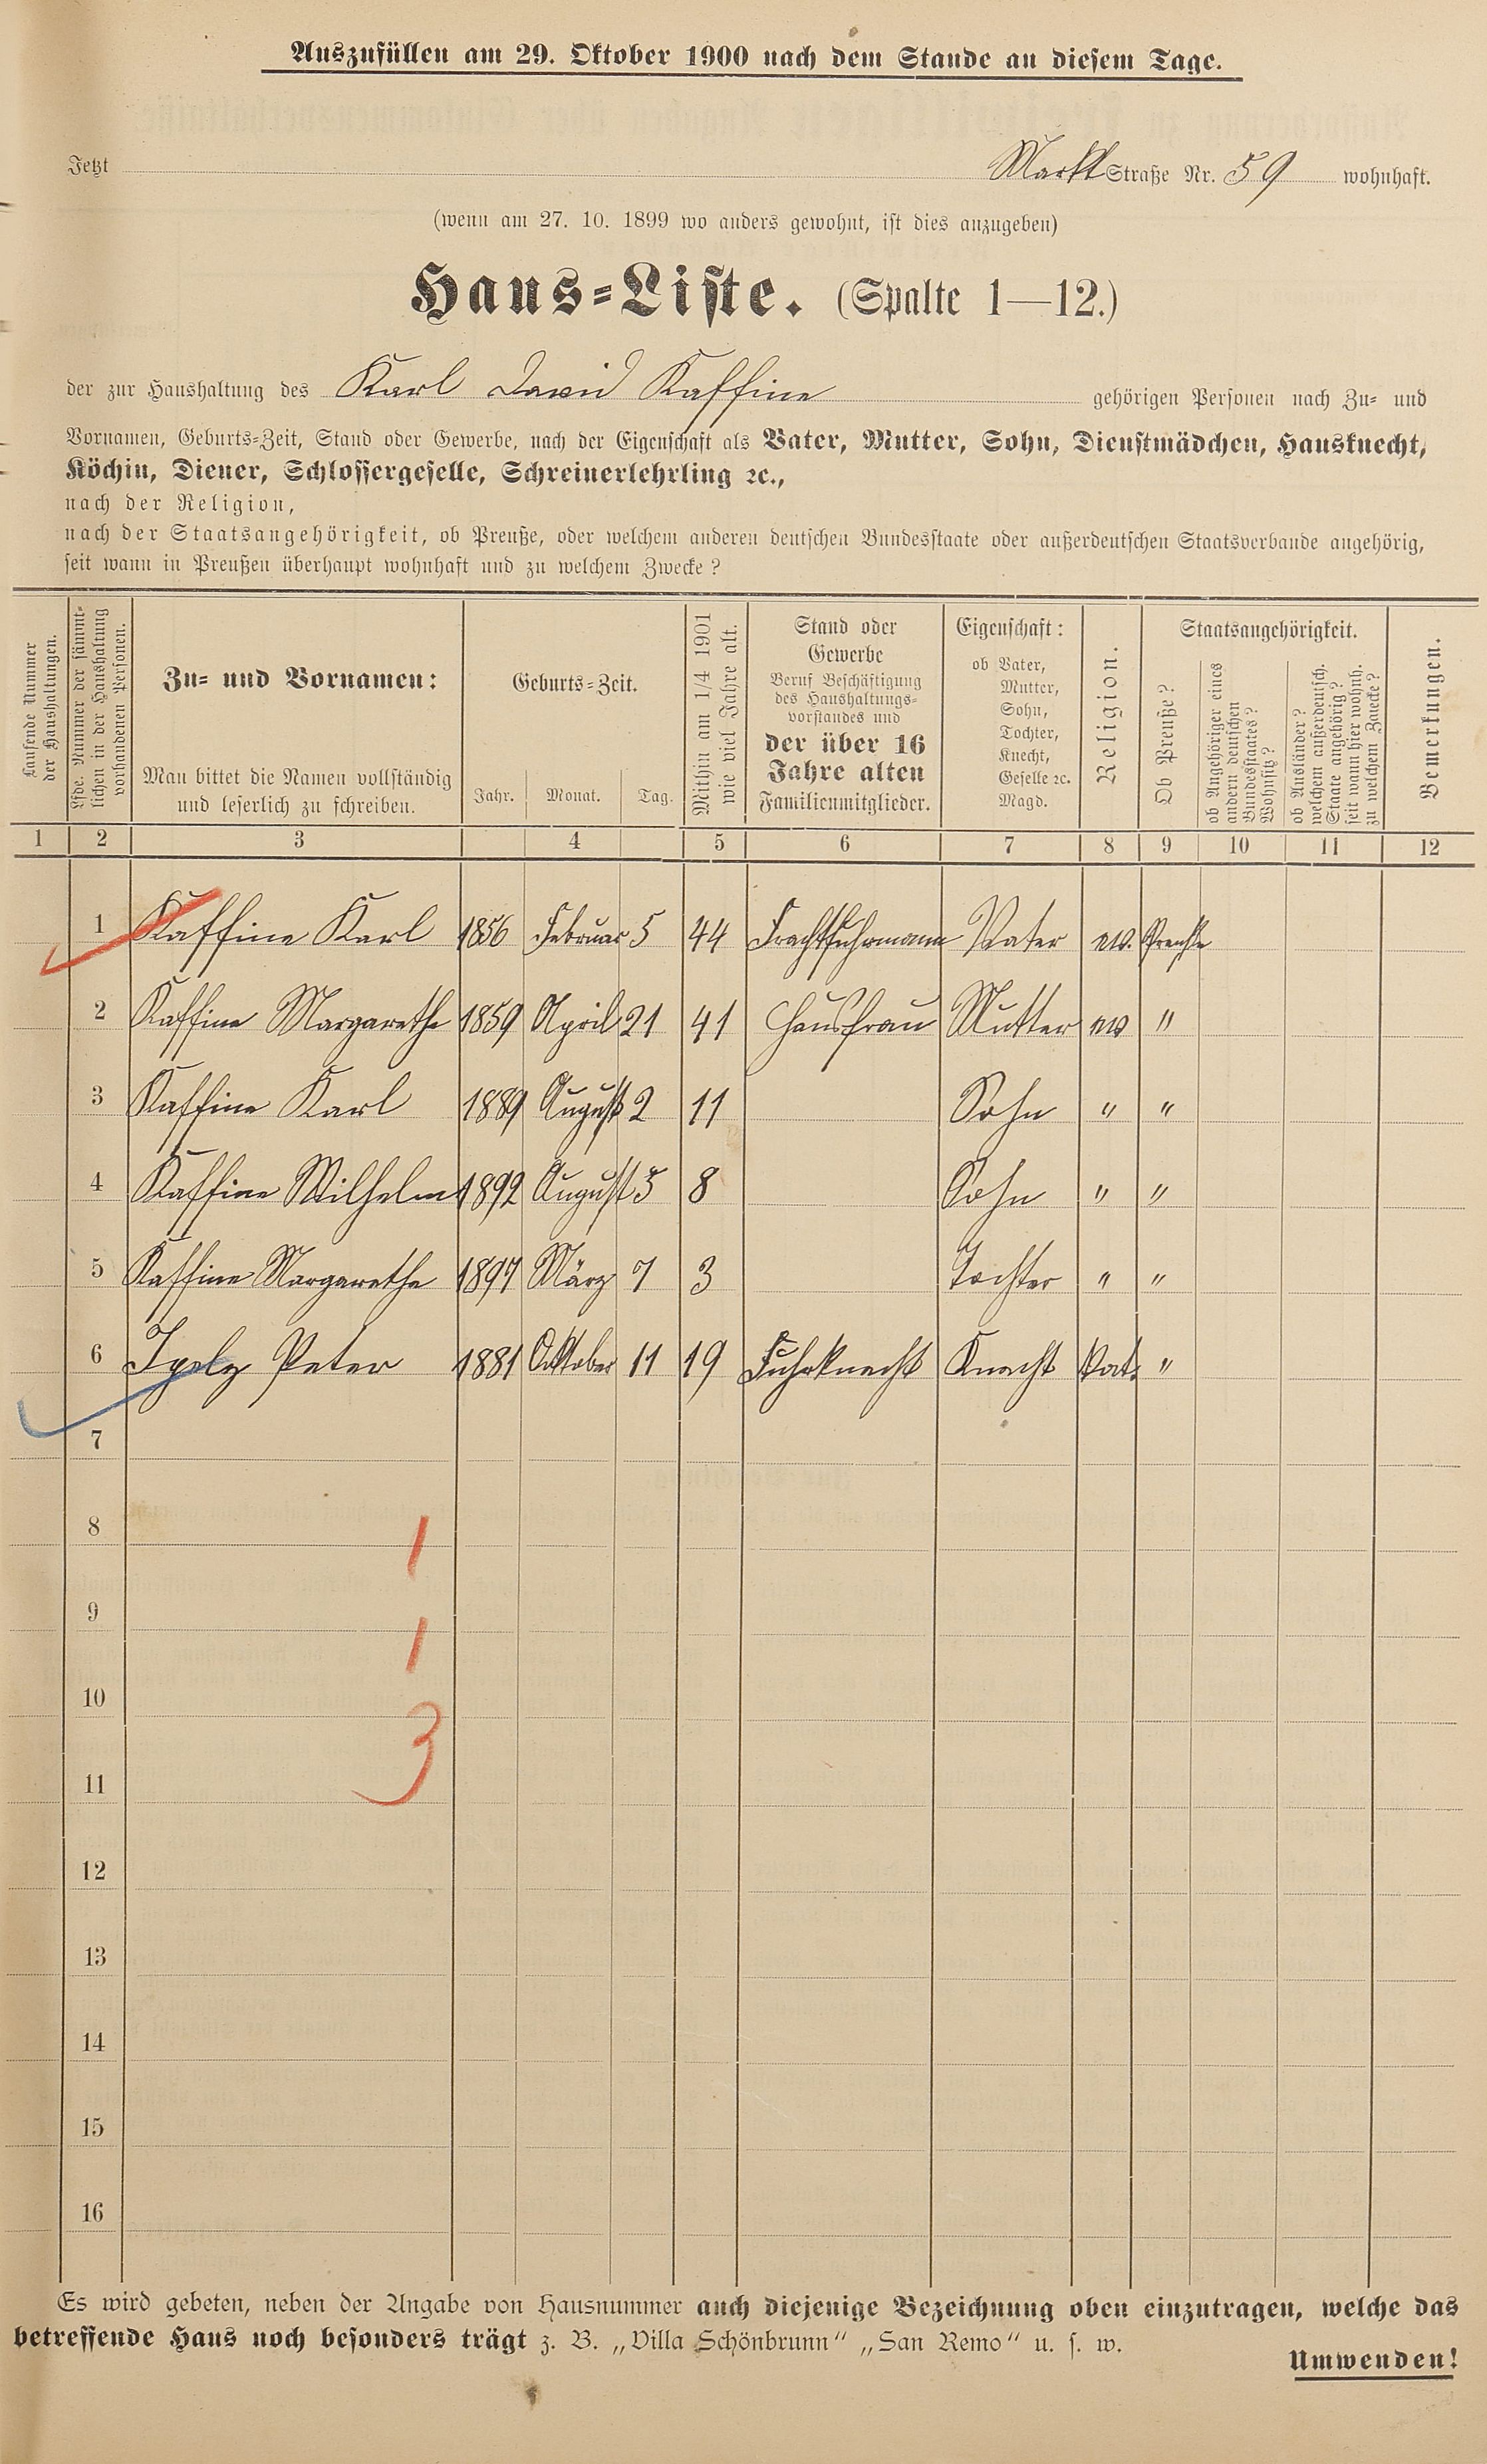 Auszufüllen am 29. Oktober 1900 nach dem Stande an diesem Tage.
Jetzt Markt Straße Nr. 59 wohnhaft.
(wenn am 27. 10. 1899 wo anders gewohnt, ist dies anzugeben)
Haus-Liste. (Spalte 1—12.)
der zur Haushaltung des Karl David Kaffine gehörigen Personen nach Zu- und
Vornamen, Geburts-Zeit, Stand oder Gewerbe, nach der Eigenschaft als Vater, Mutter, Sohn, Dienstmädchen, Hausknecht,
Köchin, Diener, Schlossergeselle, Schreinerlehrling ꝛc.,
nach der Religion,
nach der Staatsangehörigkeit, ob Preuße, oder welchem anderen deutschen Bundesstaate oder außerdeutschen Staatsverbande angehörig,
seit wann in Preußen überhaupt wohnhaft und zu welchem Zwecke?
Laufende Nummer
der Haushaltungen.
Lfde. Nummer der sämmt-
lichen in der Haushaltung
vorhandenen Personen.
Zu- und Vornamen:
Man bittet die Namen vollständig
und leserlich zu schreiben.
Geburts-Zeit.
Jahr. Monat. Tag.
Mithin am 1/4 1901
wie viel Jahre alt.
Stand oder
Gewerbe
Beruf Beschäftigung
des Haushaltungs-
vorstandes und
der über 16
Jahre alten
Familienmitglieder.
Eigenschaft:
ob Vater,
Mutter,
Sohn,
Tochter,
Knecht,
Geselle ꝛc.
Magd.
Religion.
Staatsangehörigkeit.
Ob Preuße?
ob Angehöriger eines
andern deutschen
Bundesstaates?
Wohnsitz?
ob Ausländer?
welchem außerdeutsch.
Staate angehörig?
seit wann hier wohnh.
zu welchem Zwecke?
Bemerkungen.
1 2 3 4 5 6 7 8 9 10 11 12
1 Kaffine Karl 1856 Februar 5 44 Frachtfuhrmann Vater ev. Preuße
2 Kaffine Margarethe 1859 April 21 41 Hausfrau Mutter ev "
3 Kaffine Karl 1889 August 2 11 Sohn " "
4 Kaffine Wilhelm 1892 August 5 8 Sohn " "
5 Kaffine Margarethe 1897 März 7 3 Tochter " "
6 Peter 1881 Oktober 11 19 Fuhrknecht Knecht Kat. "
7
8 1
9 1
10
11 3
12
13
14
15
16
Es wird gebeten, neben der Angabe von Hausnummer auch diejenige Bezeichnung oben einzutragen, welche das
betreffende Haus noch besonders trägt z. B. „Villa Schönbrunn" „San Remo" u. s. w.
Umwenden!